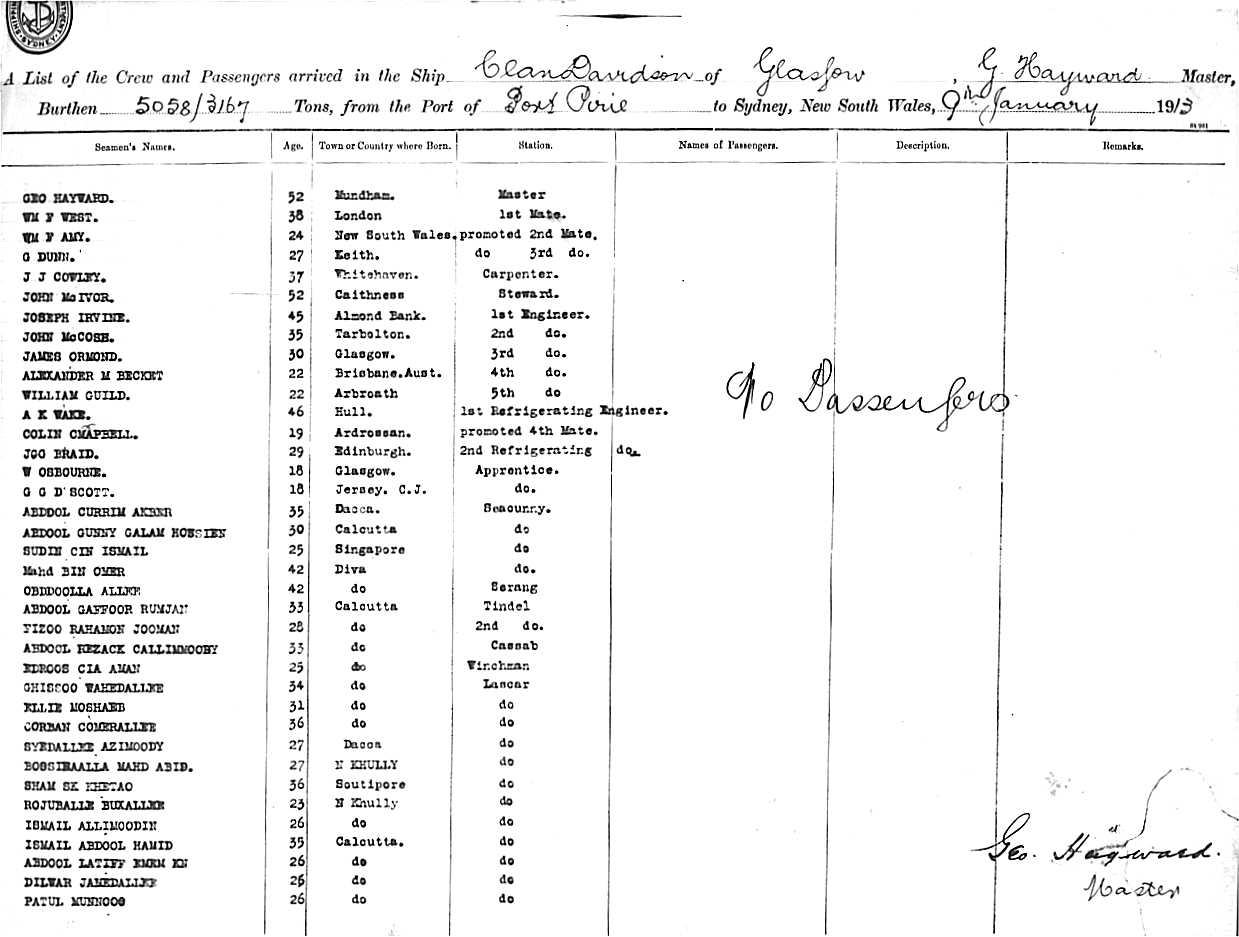 SYDNEY
A List of the Crew and Passengers arrived in the Ship Clan Davidson of Glasgow, G. Hayward Master,
Burthen 5058/3167 Tons, from the Port of Port Pirie to Sydney, New South Wales, 9th January 1913
Seamen's Names. Age. Town or Country where Born. Station. Names of Passengers. Description. Remarks.
GEO HAYWARD. 52 Mundham. Master
WM F WEST. 38 London 1st Mate.
WM F AMY. 24 New South Wales. promoted 2nd Mate.
G DUNN. 27 Keith. do 3rd do.
J J COWLEY. 37 Whitehaven. Carpenter.
JOHN McIVOR. 52 Caithness Steward.
JOSEPH IRVINE. 45 Almond Bank. 1st Engineer.
JOHN McCOSH. 35 Tarbolton. 2nd do.
JAMES ORMOND. 30 Glasgow. 3rd do.
ALEXANDER M BECKET 22 Brisbane.Aust. 4th do.
WILLIAM GUILD. 22 Arbroath 5th do
A K WAKE. 46 Hull. 1st Refrigerating Engineer.
COLIN CMAPBELL. 19 Ardrossan. promoted 4th Mate.
JGO BRAID. 29 Edinburgh. 2nd Refrigerating do.
W OSBOURNE. 18 Glasgow. Apprentice.
G G D'SCOTT. 18 Jersey. C.J. do.
ABDOOL CURRIM AKBER 35 Dacca. Seacunny.
ABDOOL GUNNY GALAM HOSSIEN 30 Calcutta do
SUDIN CIN ISMAIL 25 Singapore do
Mahd BIN OMER 42 Diva do.
OBDDOOLLA ALLEE 42 do Serang
ABDOOL GAFFOOR RUMJAN 33 Calcutta Tindel
FIZOO RAHAMON JOOMAN 28 do 2nd do.
ABDOOL REZACK CALLIMMOOBY 33 do Cassab
EDROOS CIA AMAN 25 do Winchman
GHISSOO WAHEDALLEE 34 do Lascar
ELLIE MOSHAEB 31 do do
CORBAN COMERALLEE 36 do do
SYEDALLEE AZIMOODY 27 Dacca do
BOSSIRAALLA MAHD ABID. 27 N KHULLY do
SHAM SK KHETAO 36 Soutipore do
ROJUBALLE BUXALLEE 23 N Khully do
ISMAIL ALLIMOODIN 26 do do
ISMAIL ABDOOL HAMID 35 Calcutta. do
ABDOOL LATIFF EMEM KN 26 do do
DILWAR JAMEDALLEE 26 do do
PATUL MUNNOOO 26 do do
No Passengers
Geo. Hayward.
Master